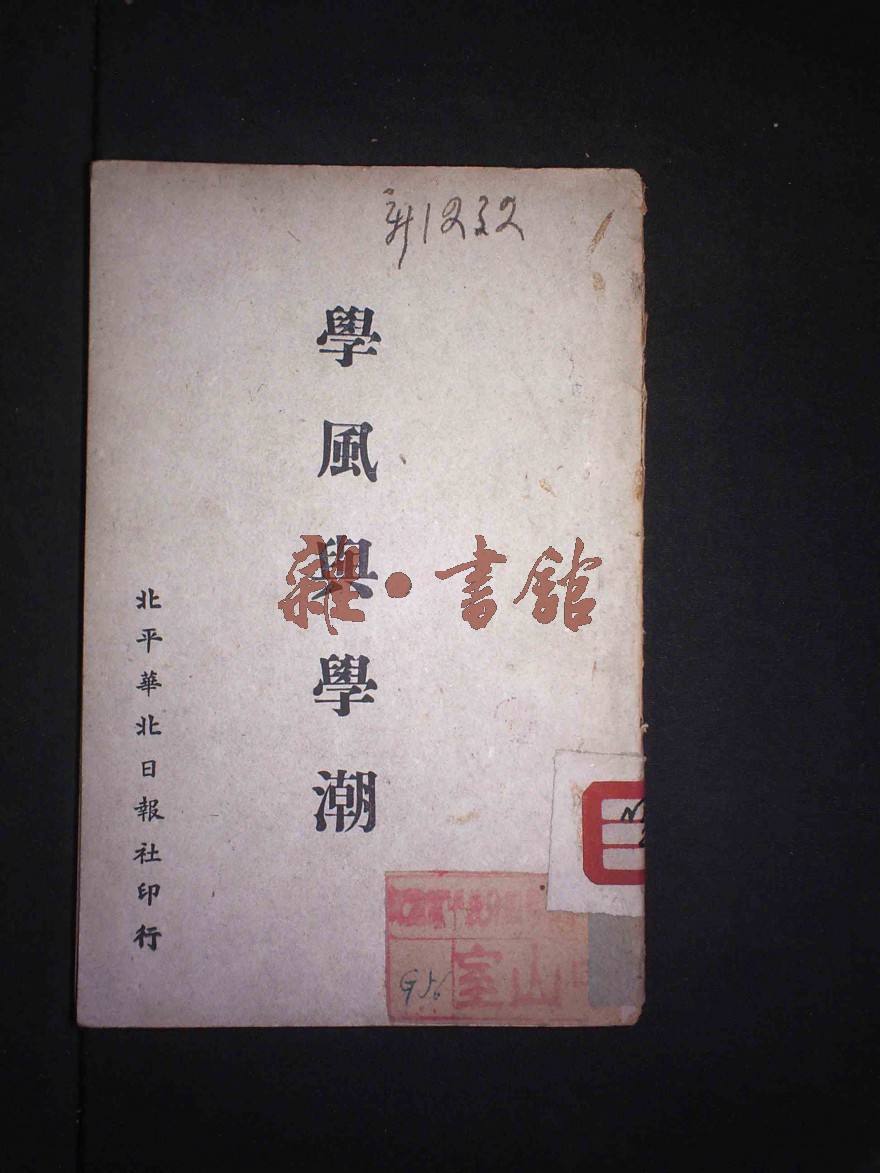 新1232
學風與學潮
雜·書館
北平華北日報社印行
山室
G56